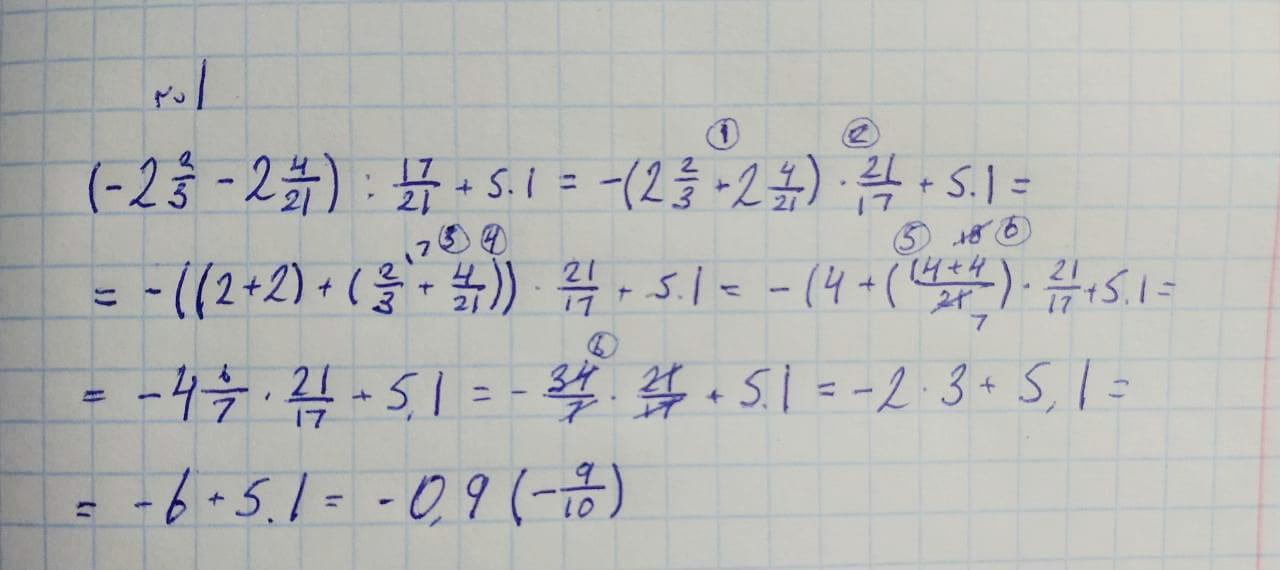 №1
(-2 2/3 - 2 4/21) : 17/21 + 5.1 = -(2 2/3 + 2 4/21) · 21/17 + 5.1 =
= -((2+2) + (2/3 + 4/21)) · 21/17 + 5.1 = -(4 + (14+4/21) · 21/17 + 5.1 =
= -4 6/7 · 21/17 + 5,1 = - 34/7 · 21/17 + 5.1 = -2 · 3 + 5,1 =
= -6 + 5.1 = -0,9 (-9/10)